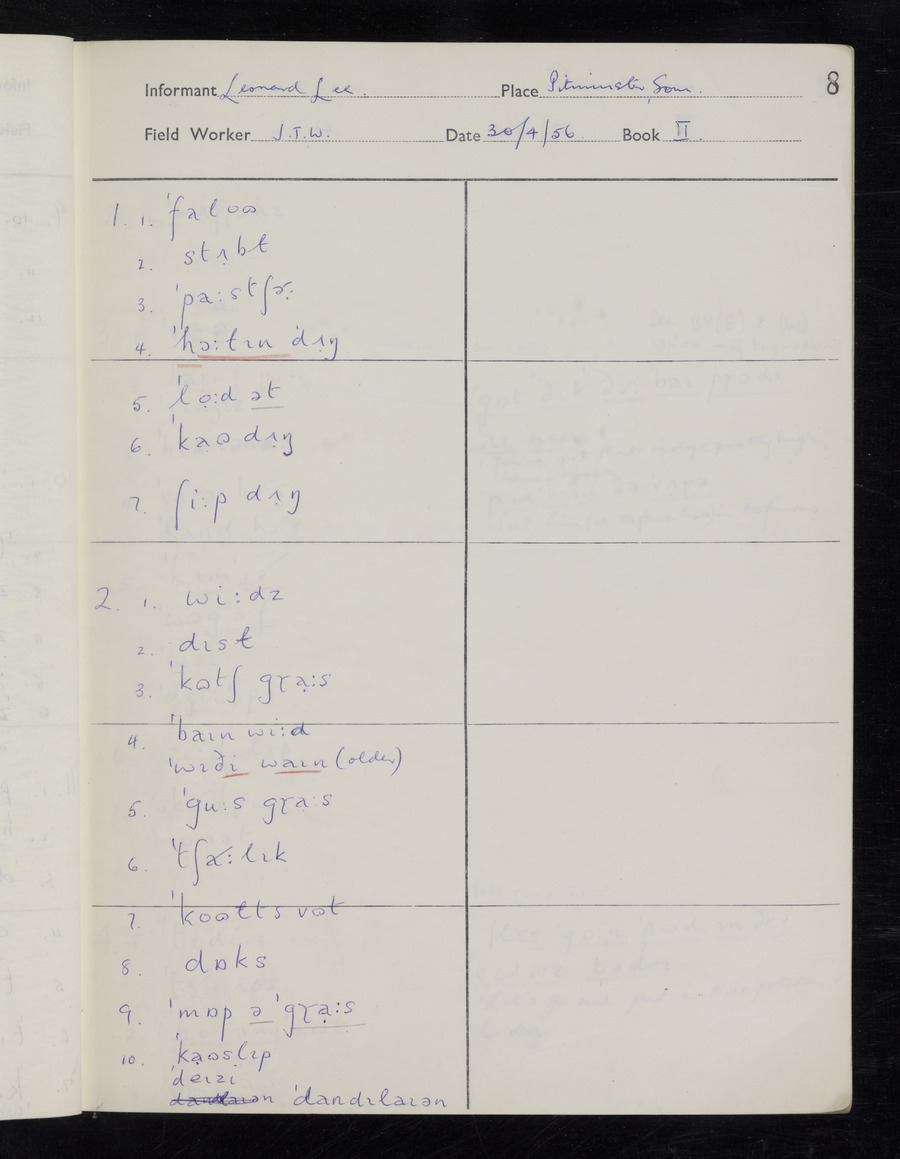 8
Informant Leonard Lee. Place Pitminster, Som.
Field Worker J.T.W. Date 30/4/56 Book II.
1. 1. ˈfaloʊ
2. stʌ̣bɫ̩
3. ˈpa:stʃɚ:
4. ˈhɔ:tɪn ˈdɪŋ
5. ˈlọ:d ət
6. ˈkaʊ dʌ̣ŋ
7. ʃi:p dʌ̣ŋ
2. 1. wi:dz
2. dɪsɫ
3. ˈkʊtʃ gɽạ:s
4. ˈbaɪn wi:d
ˈwɪði waɪn (older)
5. ˈgu:s gɽạ:s
6. ˈtʃɚ:lɪk
7. ˈkoʊɫts vʊt
8. dɒks
9. ˈmɒp ə ˈgɽạ:s
10. ˈkạʊslɪp
ˈdeɪzi
ˈdandɪlaɪən